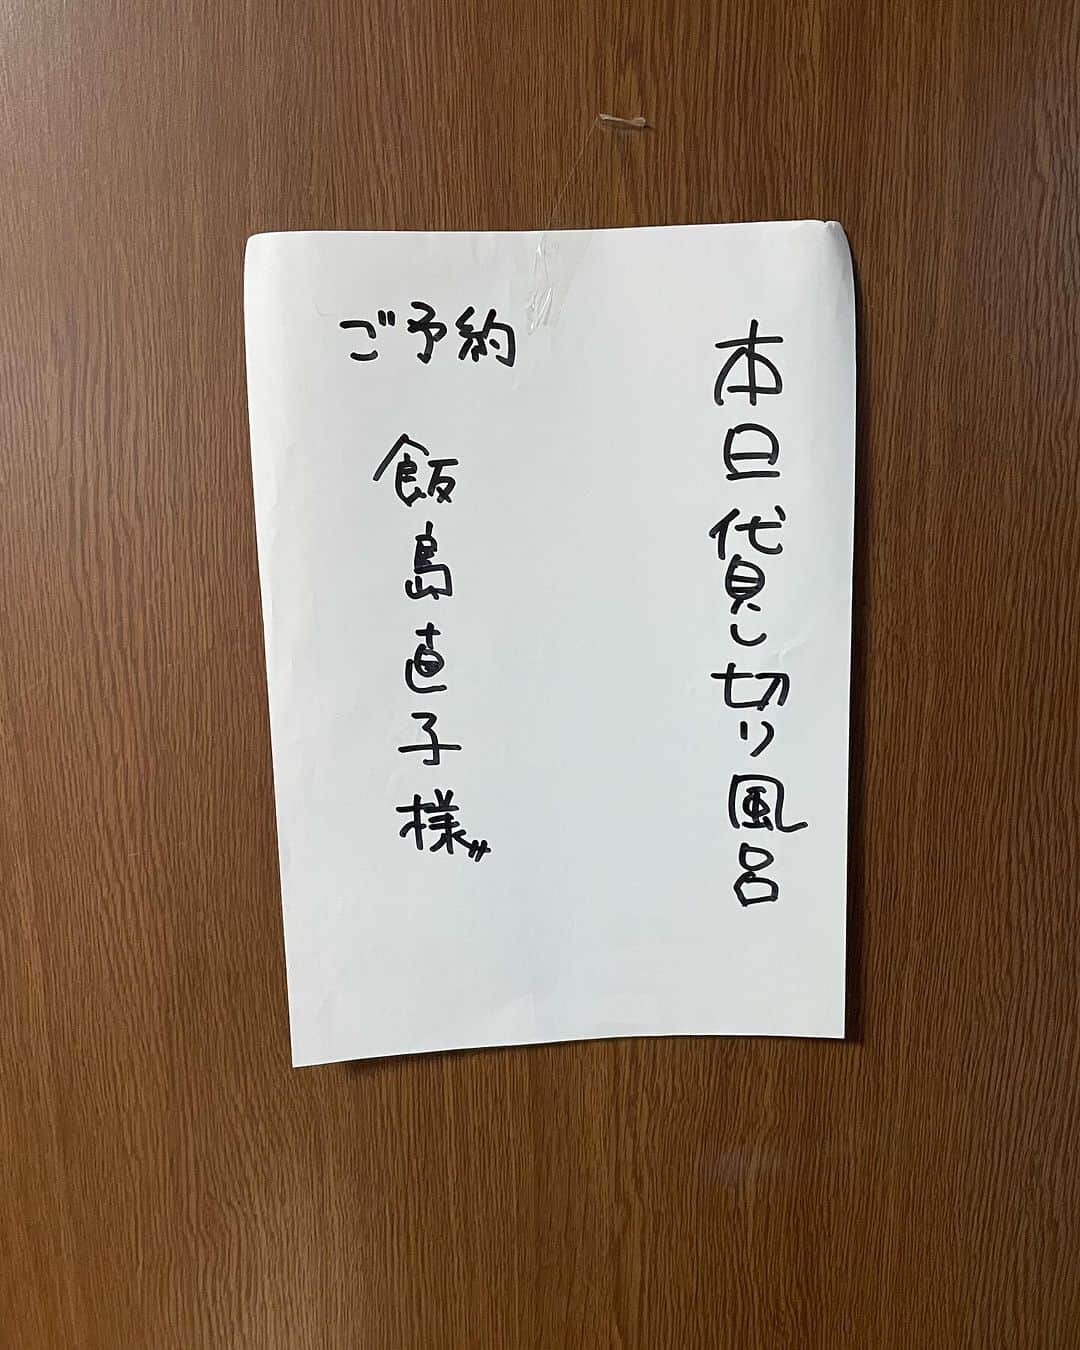 本日貸し切り風呂
ご予約
飯島直子様〃